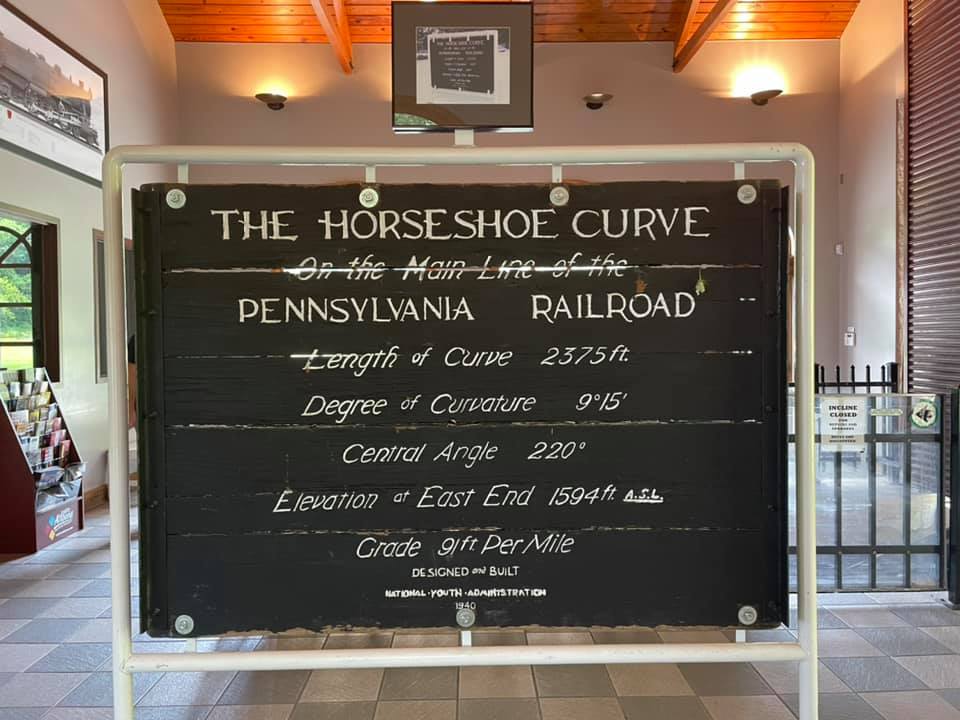 THE HORSESHOE CURVE
On the Main Line of the
PENNSYLVANIA RAILROAD
Length of Curve 2375 ft.
Degree of Curvature 9°15'
Central Angle 220°
Elevation at East End 1594 ft. A.S.L.
Grade 91 ft. Per Mile
DESIGNED and BUILT
NATIONAL·YOUTH·ADMINISTRATION
1940
THE HORSESHOE CURVE
INCLINE
CLOSED